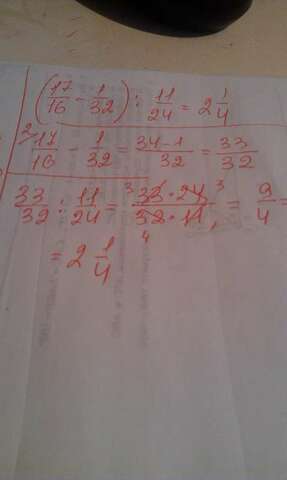 (17/16 - 1/32) : 11/24 = 2 1/4
2 17/16 - 1/32 = 34-1/32 = 33/32
33/32 : 11/24 = 3 33 · 24 3/32 · 11 4 = 9/4 =
= 2 1/4